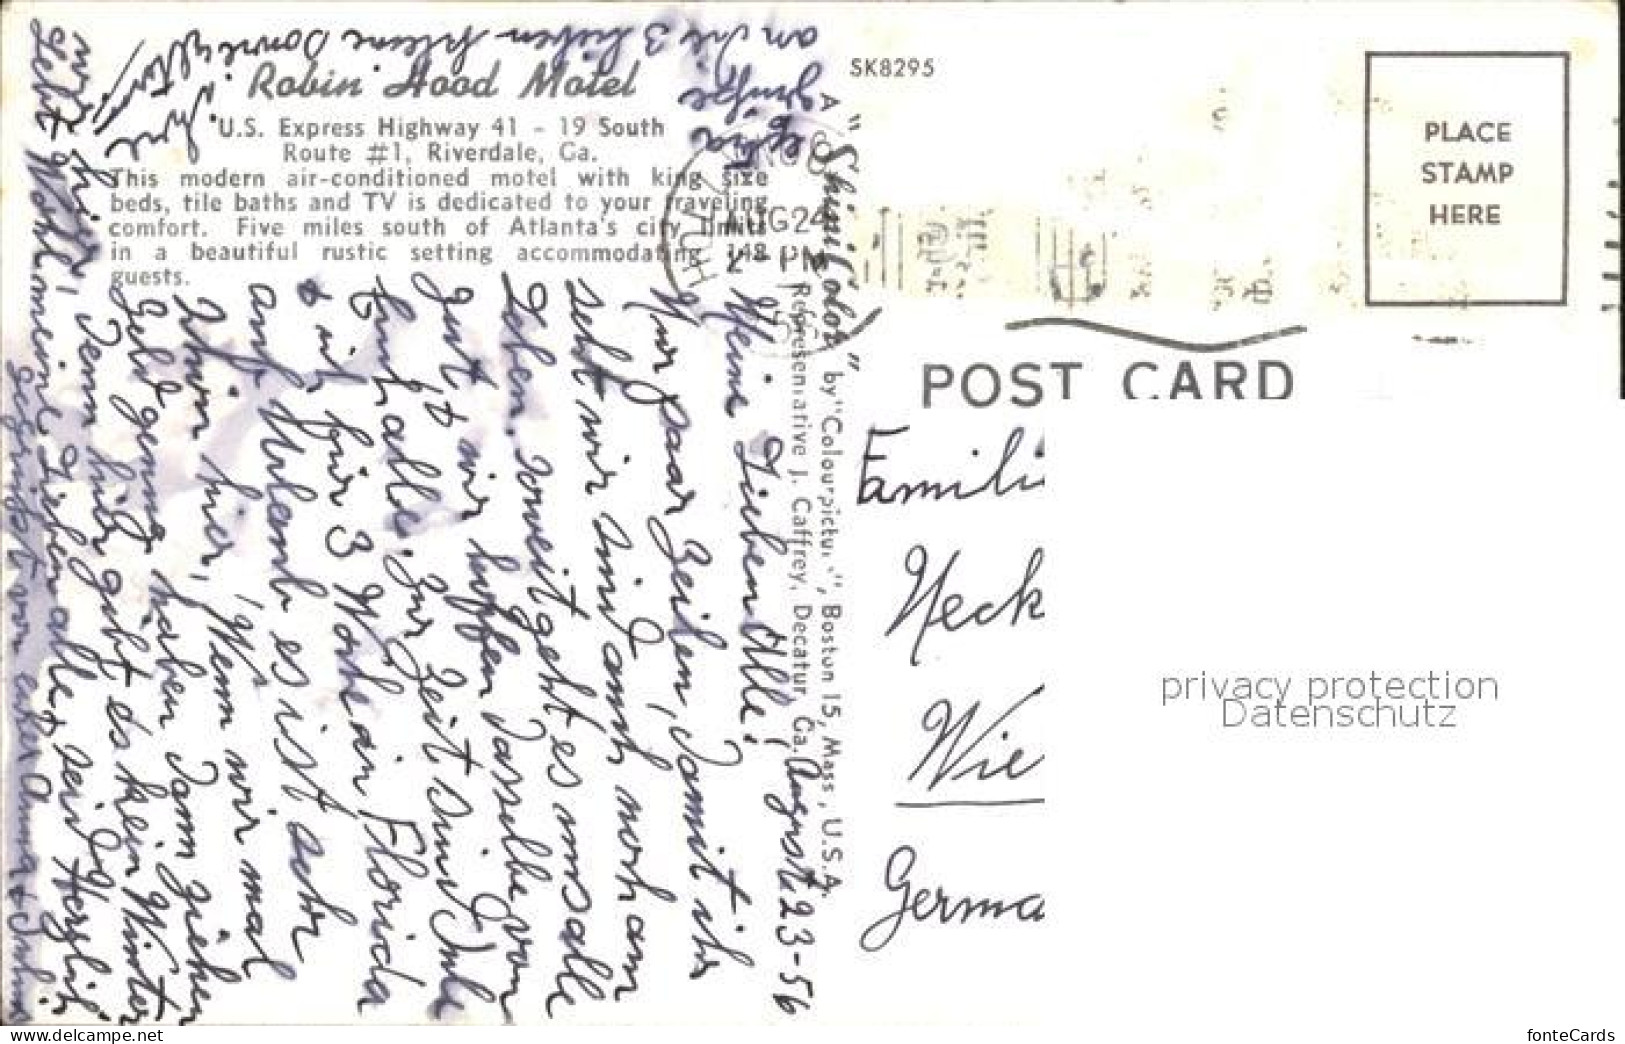 SK8295
Robin Hood Motel
U.S. Express Highway 41 - 19 South
Route #1, Riverdale, Ga.
This modern air-conditioned motel with king size
beds, tile baths and TV is dedicated to your traveling
comfort. Five miles south of Atlanta's city limits
in a beautiful rustic setting accommodating 148
guests.
A "ShiniColor" by "Colourpicture", Boston 15, Mass., U.S.A.
Representative J. Caffrey, Decatur, Ga.
PLACE
STAMP
HERE
POST CARD
AUG 24
2 - PM
August 23-56
Meine Lieben Alle!
Nur paar Zeilen, damit ihr
seht wir sind auch noch am
Leben. Soweit geht es uns alle
gut, wir hoffen dasselbe von
Euch alle. Zur Zeit sind Jule
& ich für 3 Wochen in Florida
auf Urlaub es ist sehr
schön hier, wenn wir mal
Geld genug haben dann ziehen
wir hier, denn hier gibt es kein Winter
Lebt Wohl meine Lieben alle & seid Herzlich
gegrüßt von eurer Anna & Julius
extra
Grüße
an die 3 lieben
Famili
Neck
Wie
Germa
privacy protection
Datenschutz
delcampe.net
fonteCards